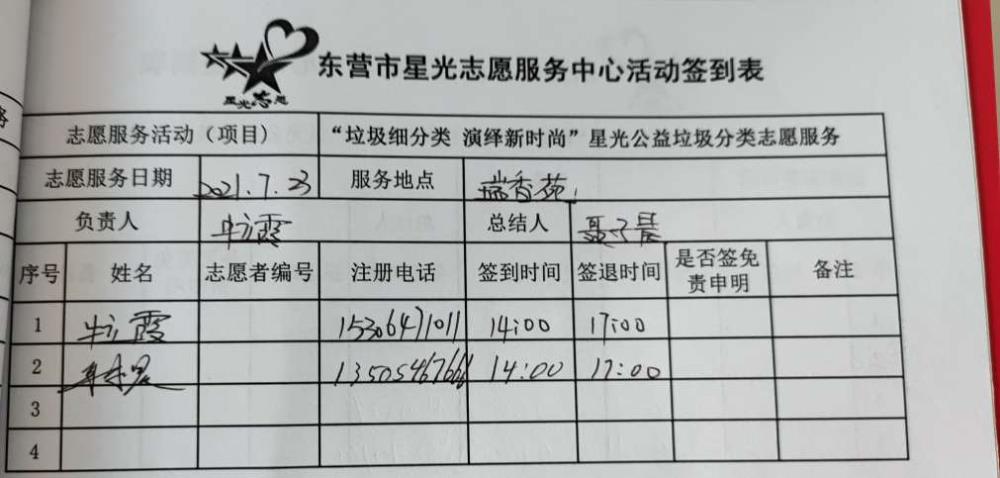 星光志愿
东营市星光志愿服务中心活动签到表
志愿服务活动（项目） “垃圾细分类 演绎新时尚”星光公益垃圾分类志愿服务
志愿服务日期 2021.7.23 服务地点 瑞香苑
负责人 牛立霞 总结人 聂子晨
序号 姓名 志愿者编号 注册电话 签到时间 签退时间 是否签免责申明 备注
1 牛立霞 15306471011 14:00 17:00
2 14:00 17:00
3
4